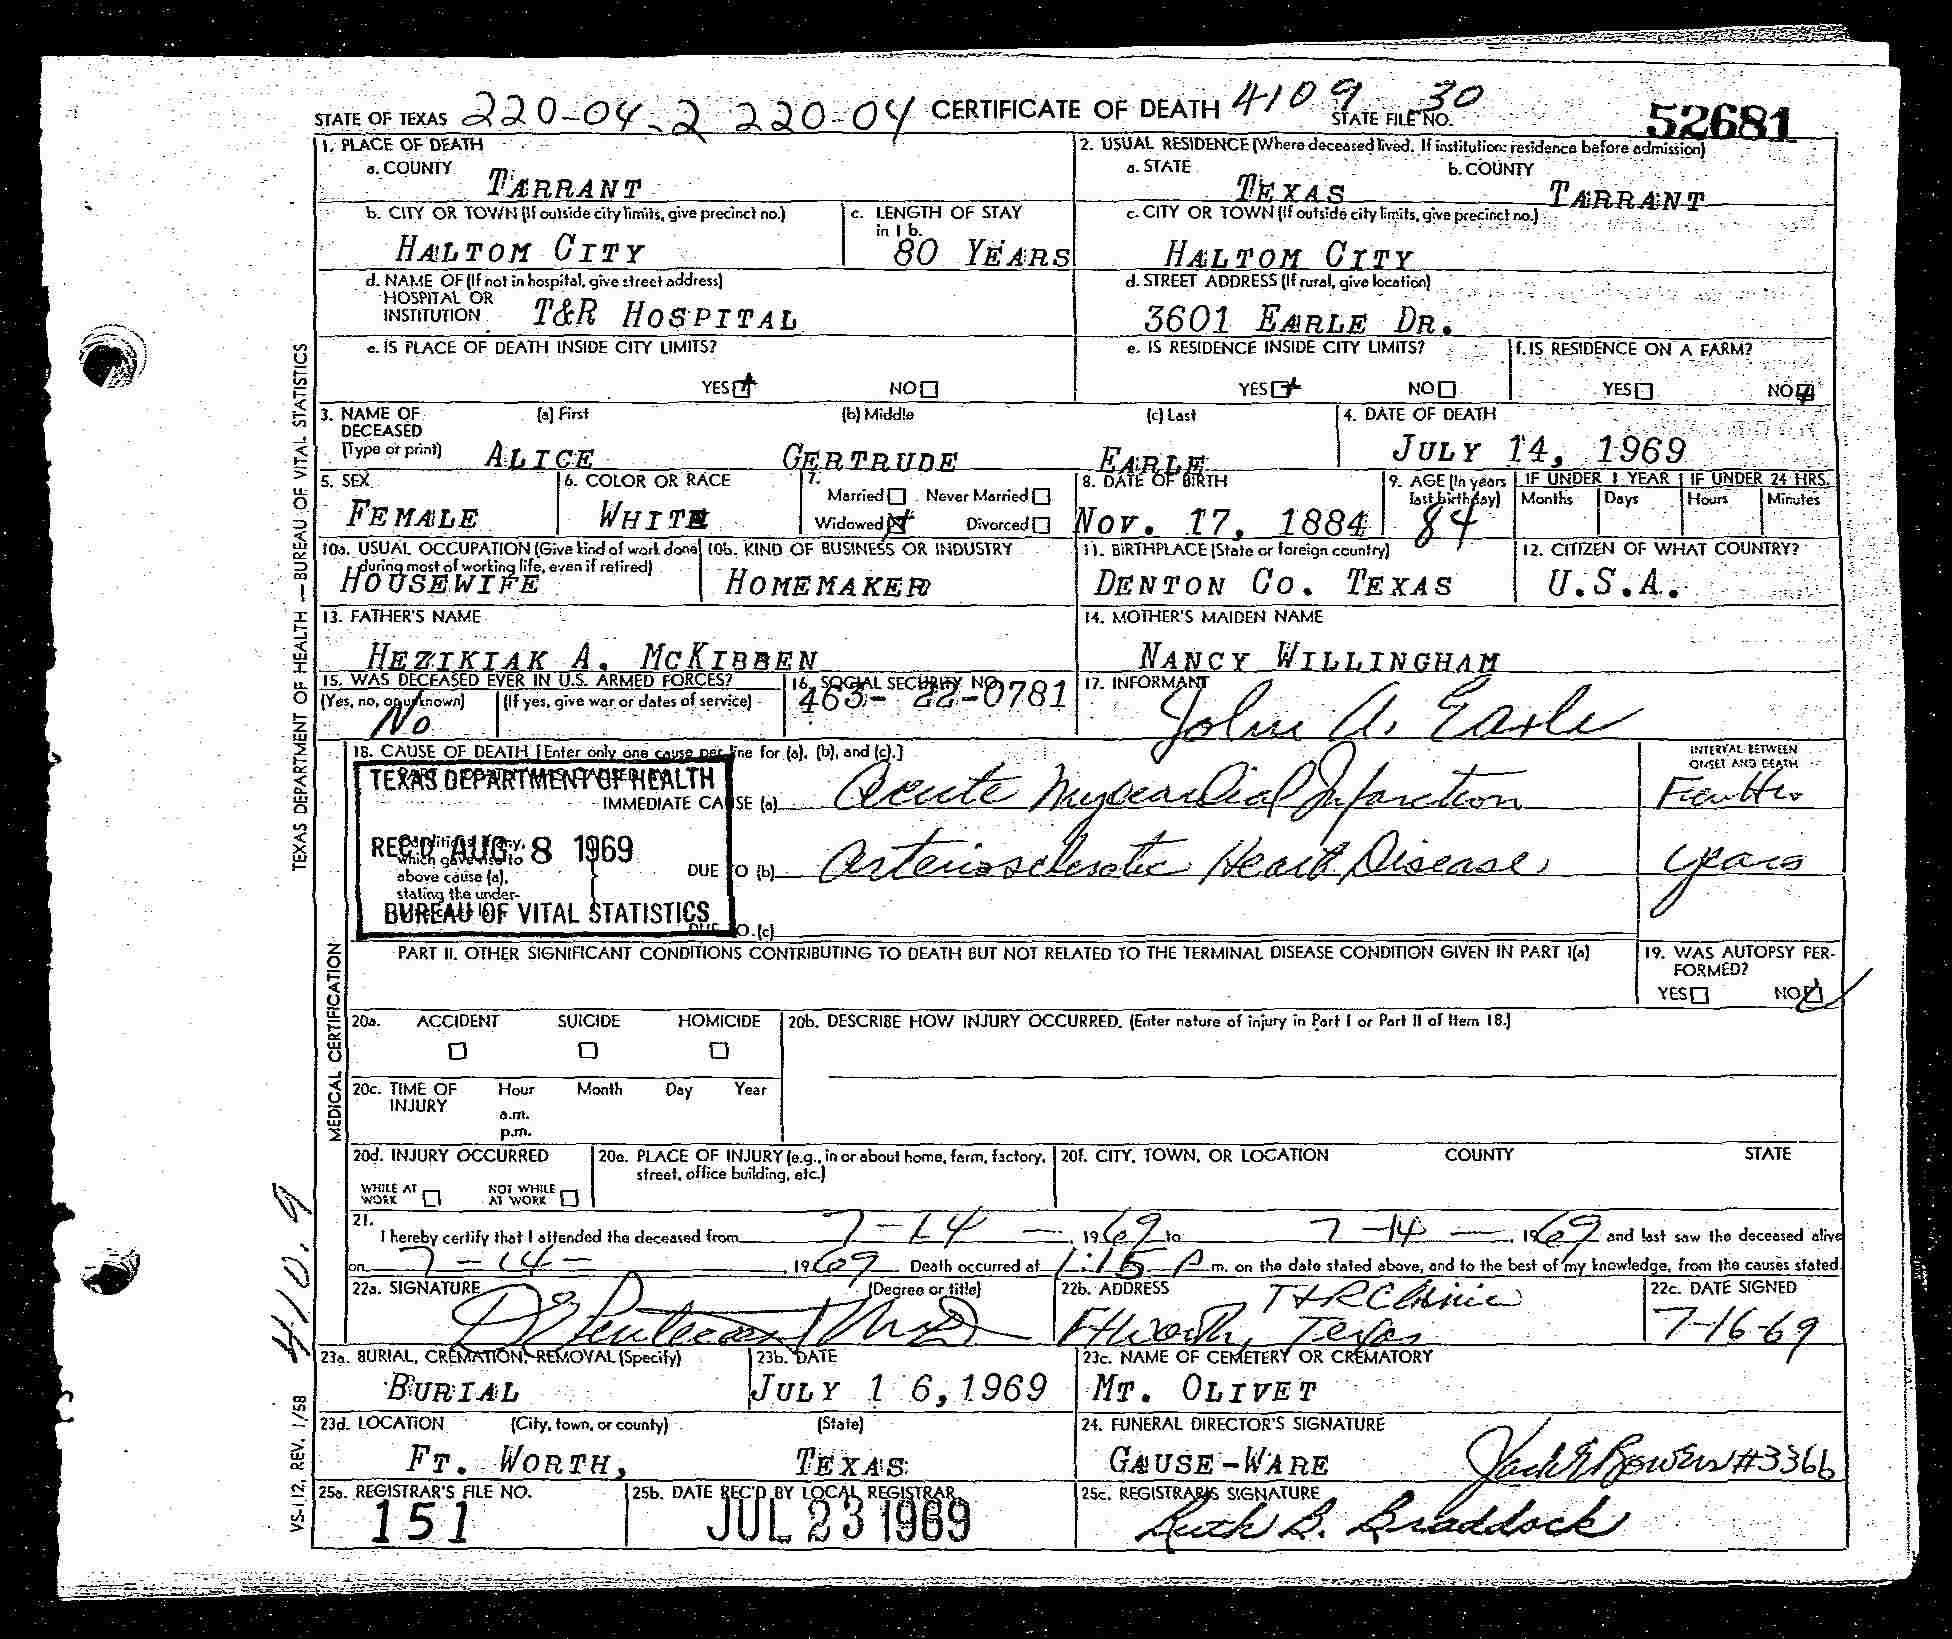 STATE OF TEXAS 220-04-2 220-04 CERTIFICATE OF DEATH 4109 30 STATE FILE NO. 52681
1. PLACE OF DEATH
a. COUNTY TARRANT
2. USUAL RESIDENCE (Where deceased lived. If institution: residence before admission)
a. STATE TEXAS b. COUNTY TARRANT
b. CITY OR TOWN (If outside city limits, give precinct no.) HALTOM CITY
c. LENGTH OF STAY in 1 b. 80 YEARS
c. CITY OR TOWN (If outside city limits, give precinct no.) HALTOM CITY
d. NAME OF (If not in hospital, give street address) HOSPITAL OR INSTITUTION T&R HOSPITAL
d. STREET ADDRESS (If rural, give location) 3601 EARLE DR.
e. IS PLACE OF DEATH INSIDE CITY LIMITS? YES NO
e. IS RESIDENCE INSIDE CITY LIMITS? YES NO
f. IS RESIDENCE ON A FARM? YES NO
3. NAME OF DECEASED (Type or print) (a) First ALICE (b) Middle GERTRUDE (c) Last EARLE
4. DATE OF DEATH JULY 14, 1969
5. SEX FEMALE
6. COLOR OR RACE WHITE
7. Married Never Married Widowed Divorced
8. DATE OF BIRTH NOV. 17, 1884
9. AGE (In years last birthday) 84
IF UNDER 1 YEAR Months Days
IF UNDER 24 HRS. Hours Minutes
10a. USUAL OCCUPATION (Give kind of work done during most of working life, even if retired) HOUSEWIFE
10b. KIND OF BUSINESS OR INDUSTRY HOMEMAKER
11. BIRTHPLACE (State or foreign country) DENTON CO. TEXAS
12. CITIZEN OF WHAT COUNTRY? U.S.A.
13. FATHER'S NAME HEZIKIAK A. MCKIBBEN
14. MOTHER'S MAIDEN NAME NANCY WILLINGHAM
15. WAS DECEASED EVER IN U.S. ARMED FORCES? (Yes, no, or unknown) No (If yes, give war or dates of service)
16. SOCIAL SECURITY NO. 463-22-0781
17. INFORMANT John A. Earle
18. CAUSE OF DEATH [Enter only one cause per line for (a), (b), and (c).]
INTERVAL BETWEEN ONSET AND DEATH
TEXAS DEPARTMENT OF HEALTH
IMMEDIATE CAUSE (a) Acute Myocardial Infarction Few Hrs
REC'D AUG 8 1969
Conditions, if any, which gave rise to above cause (a), stating the under-
DUE TO (b) Arteriosclerotic Heart Disease years
BUREAU OF VITAL STATISTICS
DUE TO (c)
PART II. OTHER SIGNIFICANT CONDITIONS CONTRIBUTING TO DEATH BUT NOT RELATED TO THE TERMINAL DISEASE CONDITION GIVEN IN PART I(a)
19. WAS AUTOPSY PERFORMED? YES NO
20a. ACCIDENT SUICIDE HOMICIDE
20b. DESCRIBE HOW INJURY OCCURRED. (Enter nature of injury in Part I or Part II of Item 18.)
20c. TIME OF INJURY Hour Month Day Year a.m. p.m.
20d. INJURY OCCURRED WHILE AT WORK NOT WHILE AT WORK
20e. PLACE OF INJURY (e.g., in or about home, farm, factory, street, office building, etc.)
20f. CITY, TOWN, OR LOCATION COUNTY STATE
21. I hereby certify that I attended the deceased from 7-14-, 1969 to 7-14-, 1969 and last saw the deceased alive
on 7-14-, 1969. Death occurred at 1:15 P m. on the date stated above, and to the best of my knowledge, from the causes stated.
22a. SIGNATURE (Degree or title)
22b. ADDRESS T&R Clinic Ft Worth, Texas
22c. DATE SIGNED 7-16-69
23a. BURIAL, CREMATION, REMOVAL (Specify) BURIAL
23b. DATE JULY 16, 1969
23c. NAME OF CEMETERY OR CREMATORY MT. OLIVET
23d. LOCATION (City, town, or county) (State) FT. WORTH, TEXAS
24. FUNERAL DIRECTOR'S SIGNATURE GAUSE-WARE Jack E Bowers #3366
25a. REGISTRAR'S FILE NO. 151
25b. DATE REC'D BY LOCAL REGISTRAR JUL 23 1969
25c. REGISTRAR'S SIGNATURE Ruth B. Braddock
TEXAS DEPARTMENT OF HEALTH — BUREAU OF VITAL STATISTICS
MEDICAL CERTIFICATION
410.9
VS-112, REV. 1/58